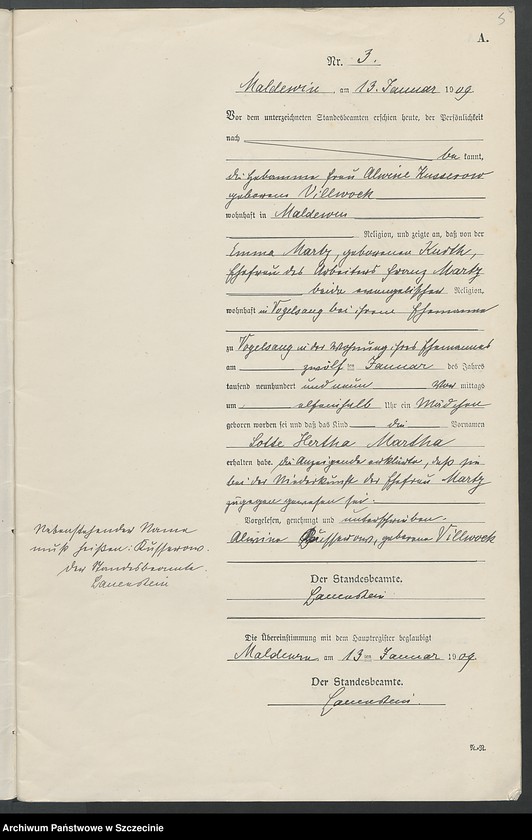 5
A.
Nr. 3.
Maldewin, am 13. Januar 1909
Vor dem unterzeichneten Standesbeamten erschien heute, der Persönlichkeit
nach
be kannt,
die Hebamme Frau Alwine Kusserow
geborene Villwock
wohnhaft in Maldewin
Religion, und zeigte an, daß von der
Emma Martz, geborenen Kurth,
Ehefrau des Arbeiters Franz Martz
beide evangelischer Religion,
wohnhaft in Vogelsang bei ihrem Ehemanne
zu Vogelsang in der Wohnung ihres Ehemannes
am zwölf ten Januar des Jahres
tausend neunhundert und neun Vor mittags
um elfeinhalb Uhr ein Mädchen
geboren worden sei und daß das Kind die Vornamen
Lotte Hertha Martha
erhalten habe. Die Anzeigende erklärte, daß sie
bei der Niederkunft der Ehefrau Martz
zugegen gewesen sei.
Vorgelesen, genehmigt und unterschrieben.
Alwine Kusserow, geborene Villwock
Nebenstehender Name
muß heißen: Kusserow.
Der Standesbeamte.
Lauenstein
Der Standesbeamte.
Lauenstein
Die Übereinstimmung mit dem Hauptregister beglaubigt
Maldewin, am 13 ten Januar 1909.
Der Standesbeamte.
Lauenstein.
N.-N.
Archiwum Państwowe w Szczecinie